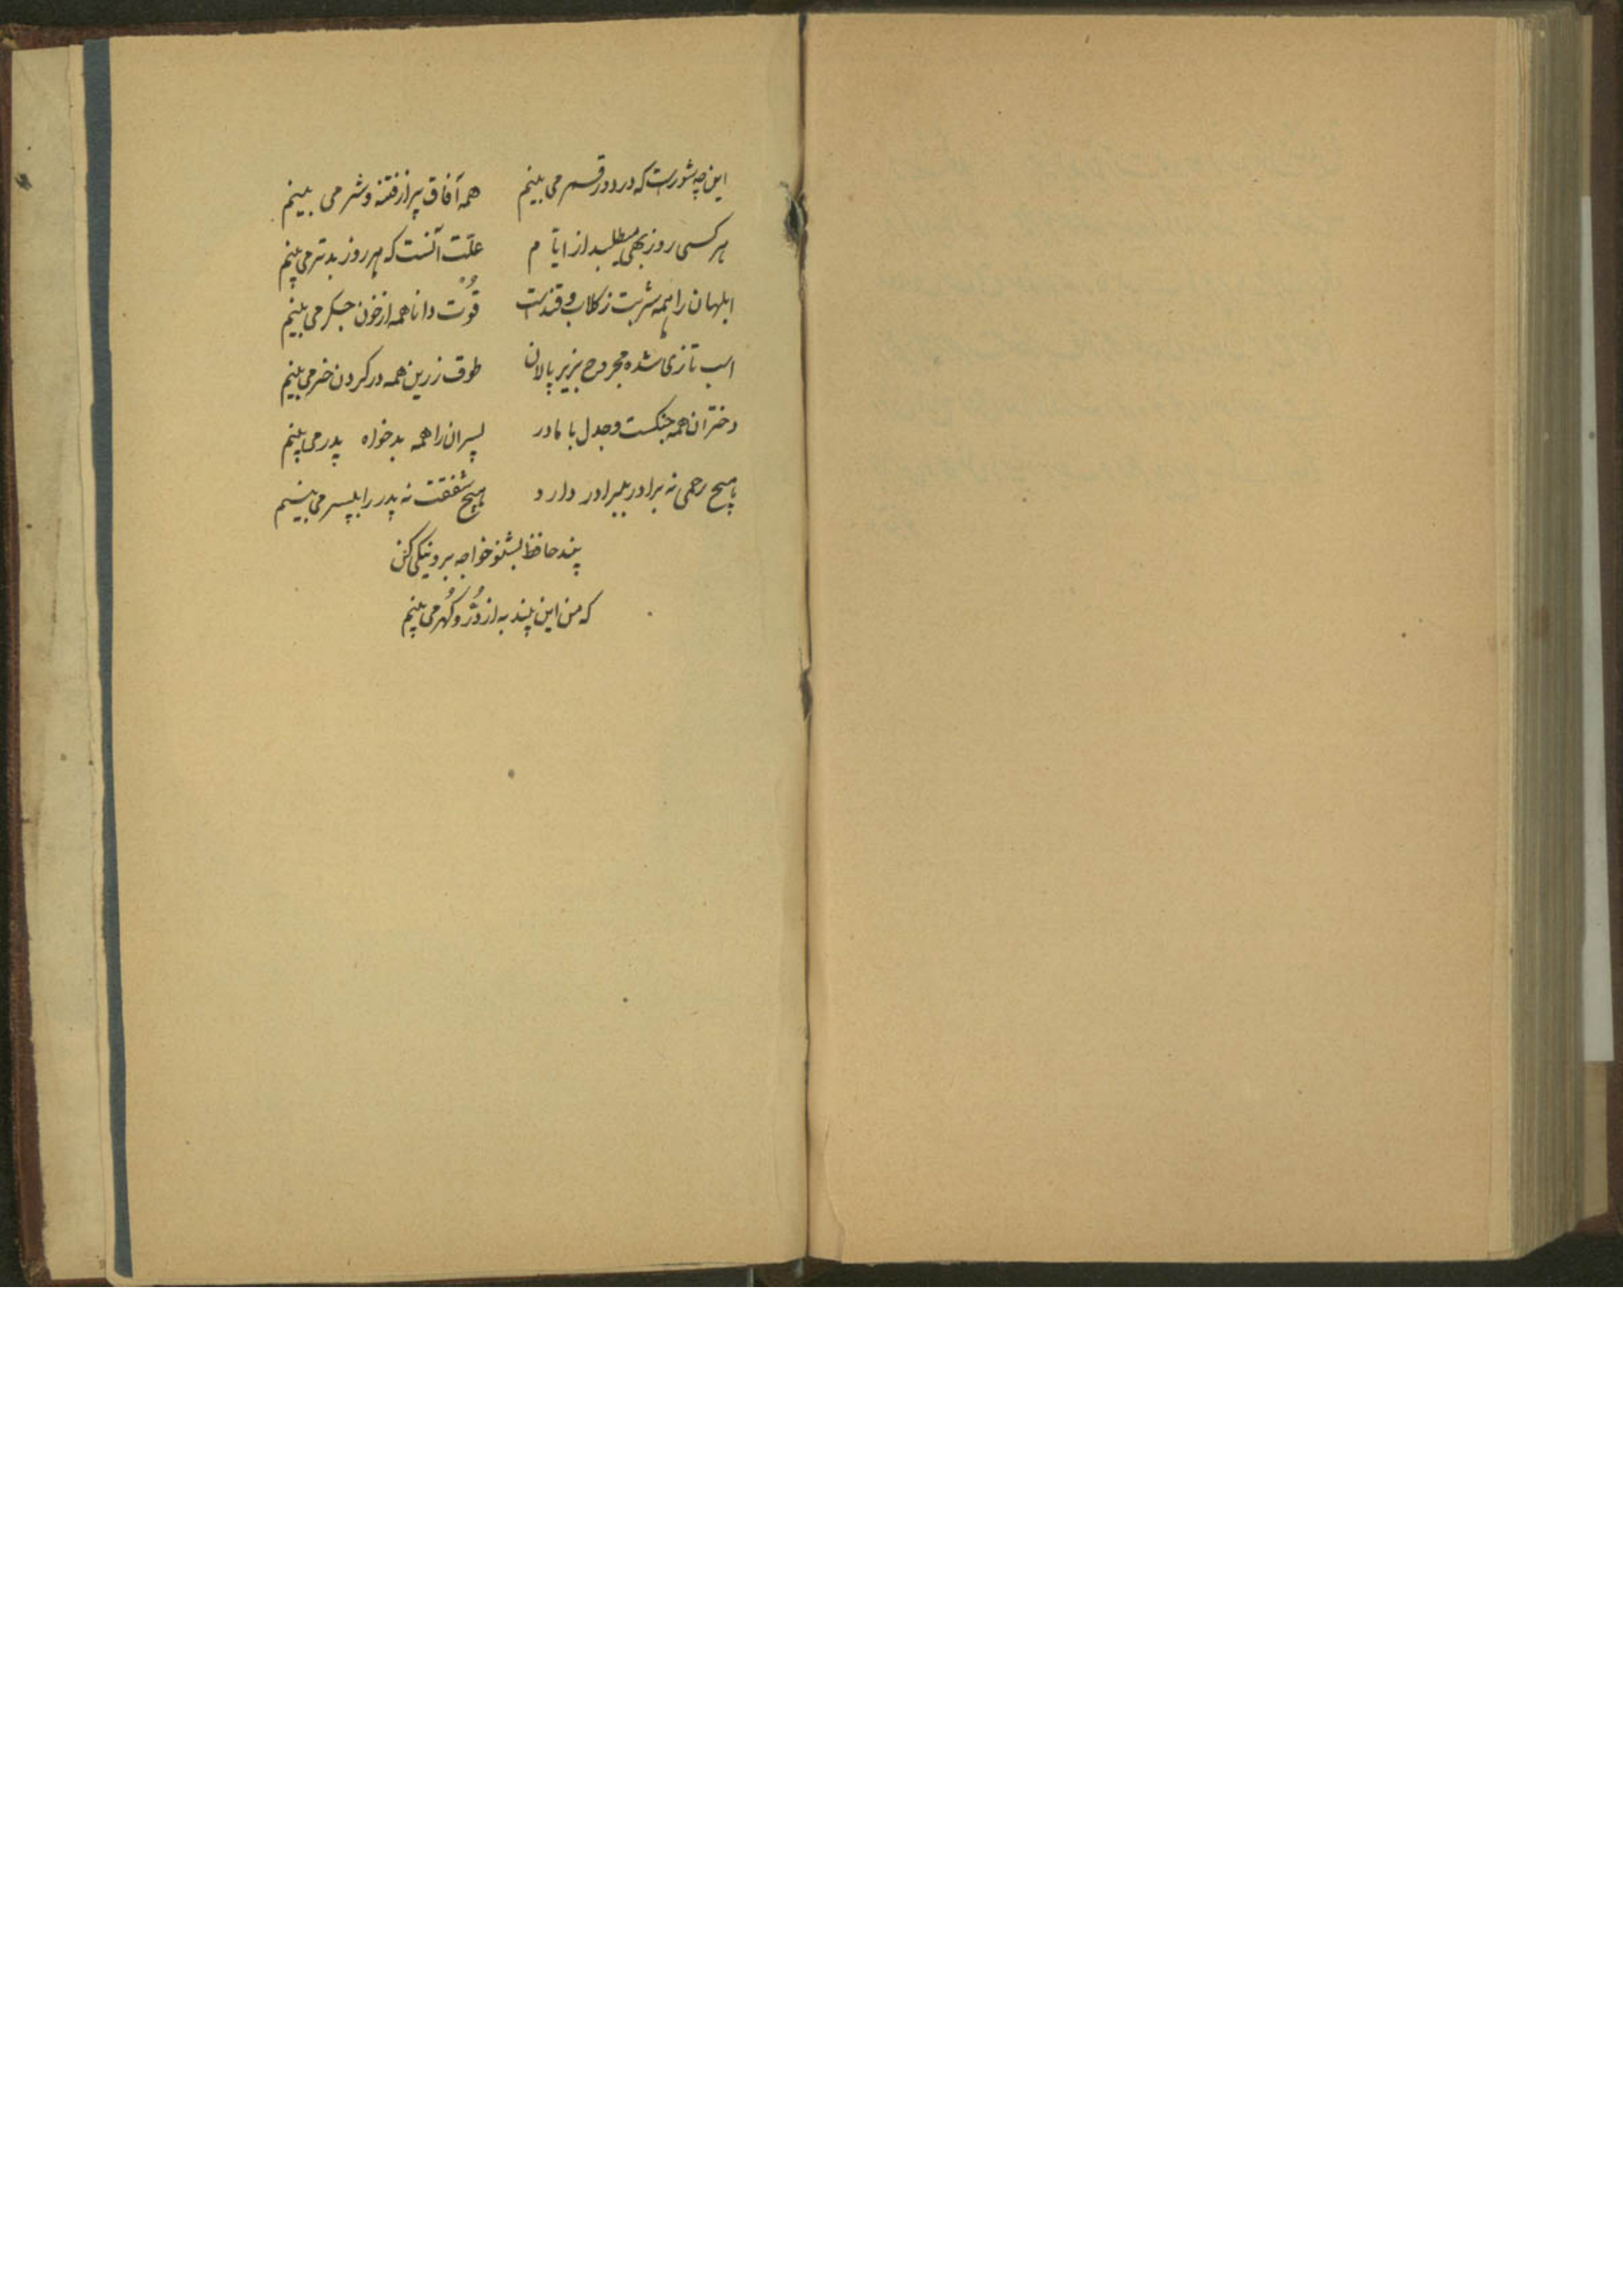 این چه شوریست که در دور قمر می بینم همه آفاق پر از فتنه و شر می بینم
هر کسی روز بهی میطلبد از ایام علّت آنست که هر روز بدتر می بینم
ابلهان را همه شربت ز کلاب و قندست قوت دانا همه از خون جکر می بینم
اسب تازی شده مجروح بزیر پالان طوق زرین همه در کردن خر می بینم
دختران همه جنکست و جدل با مادر پسران را همه بدخواه پدر می بینم
هیچ رحمی نه برادر ببرادر دارد هیچ شفقت نه پدر را بپسر می بینم
پند حافظ بشنو خواجه برو نیکی کن
که من این پند به از دُرّ و کُهر می بینم